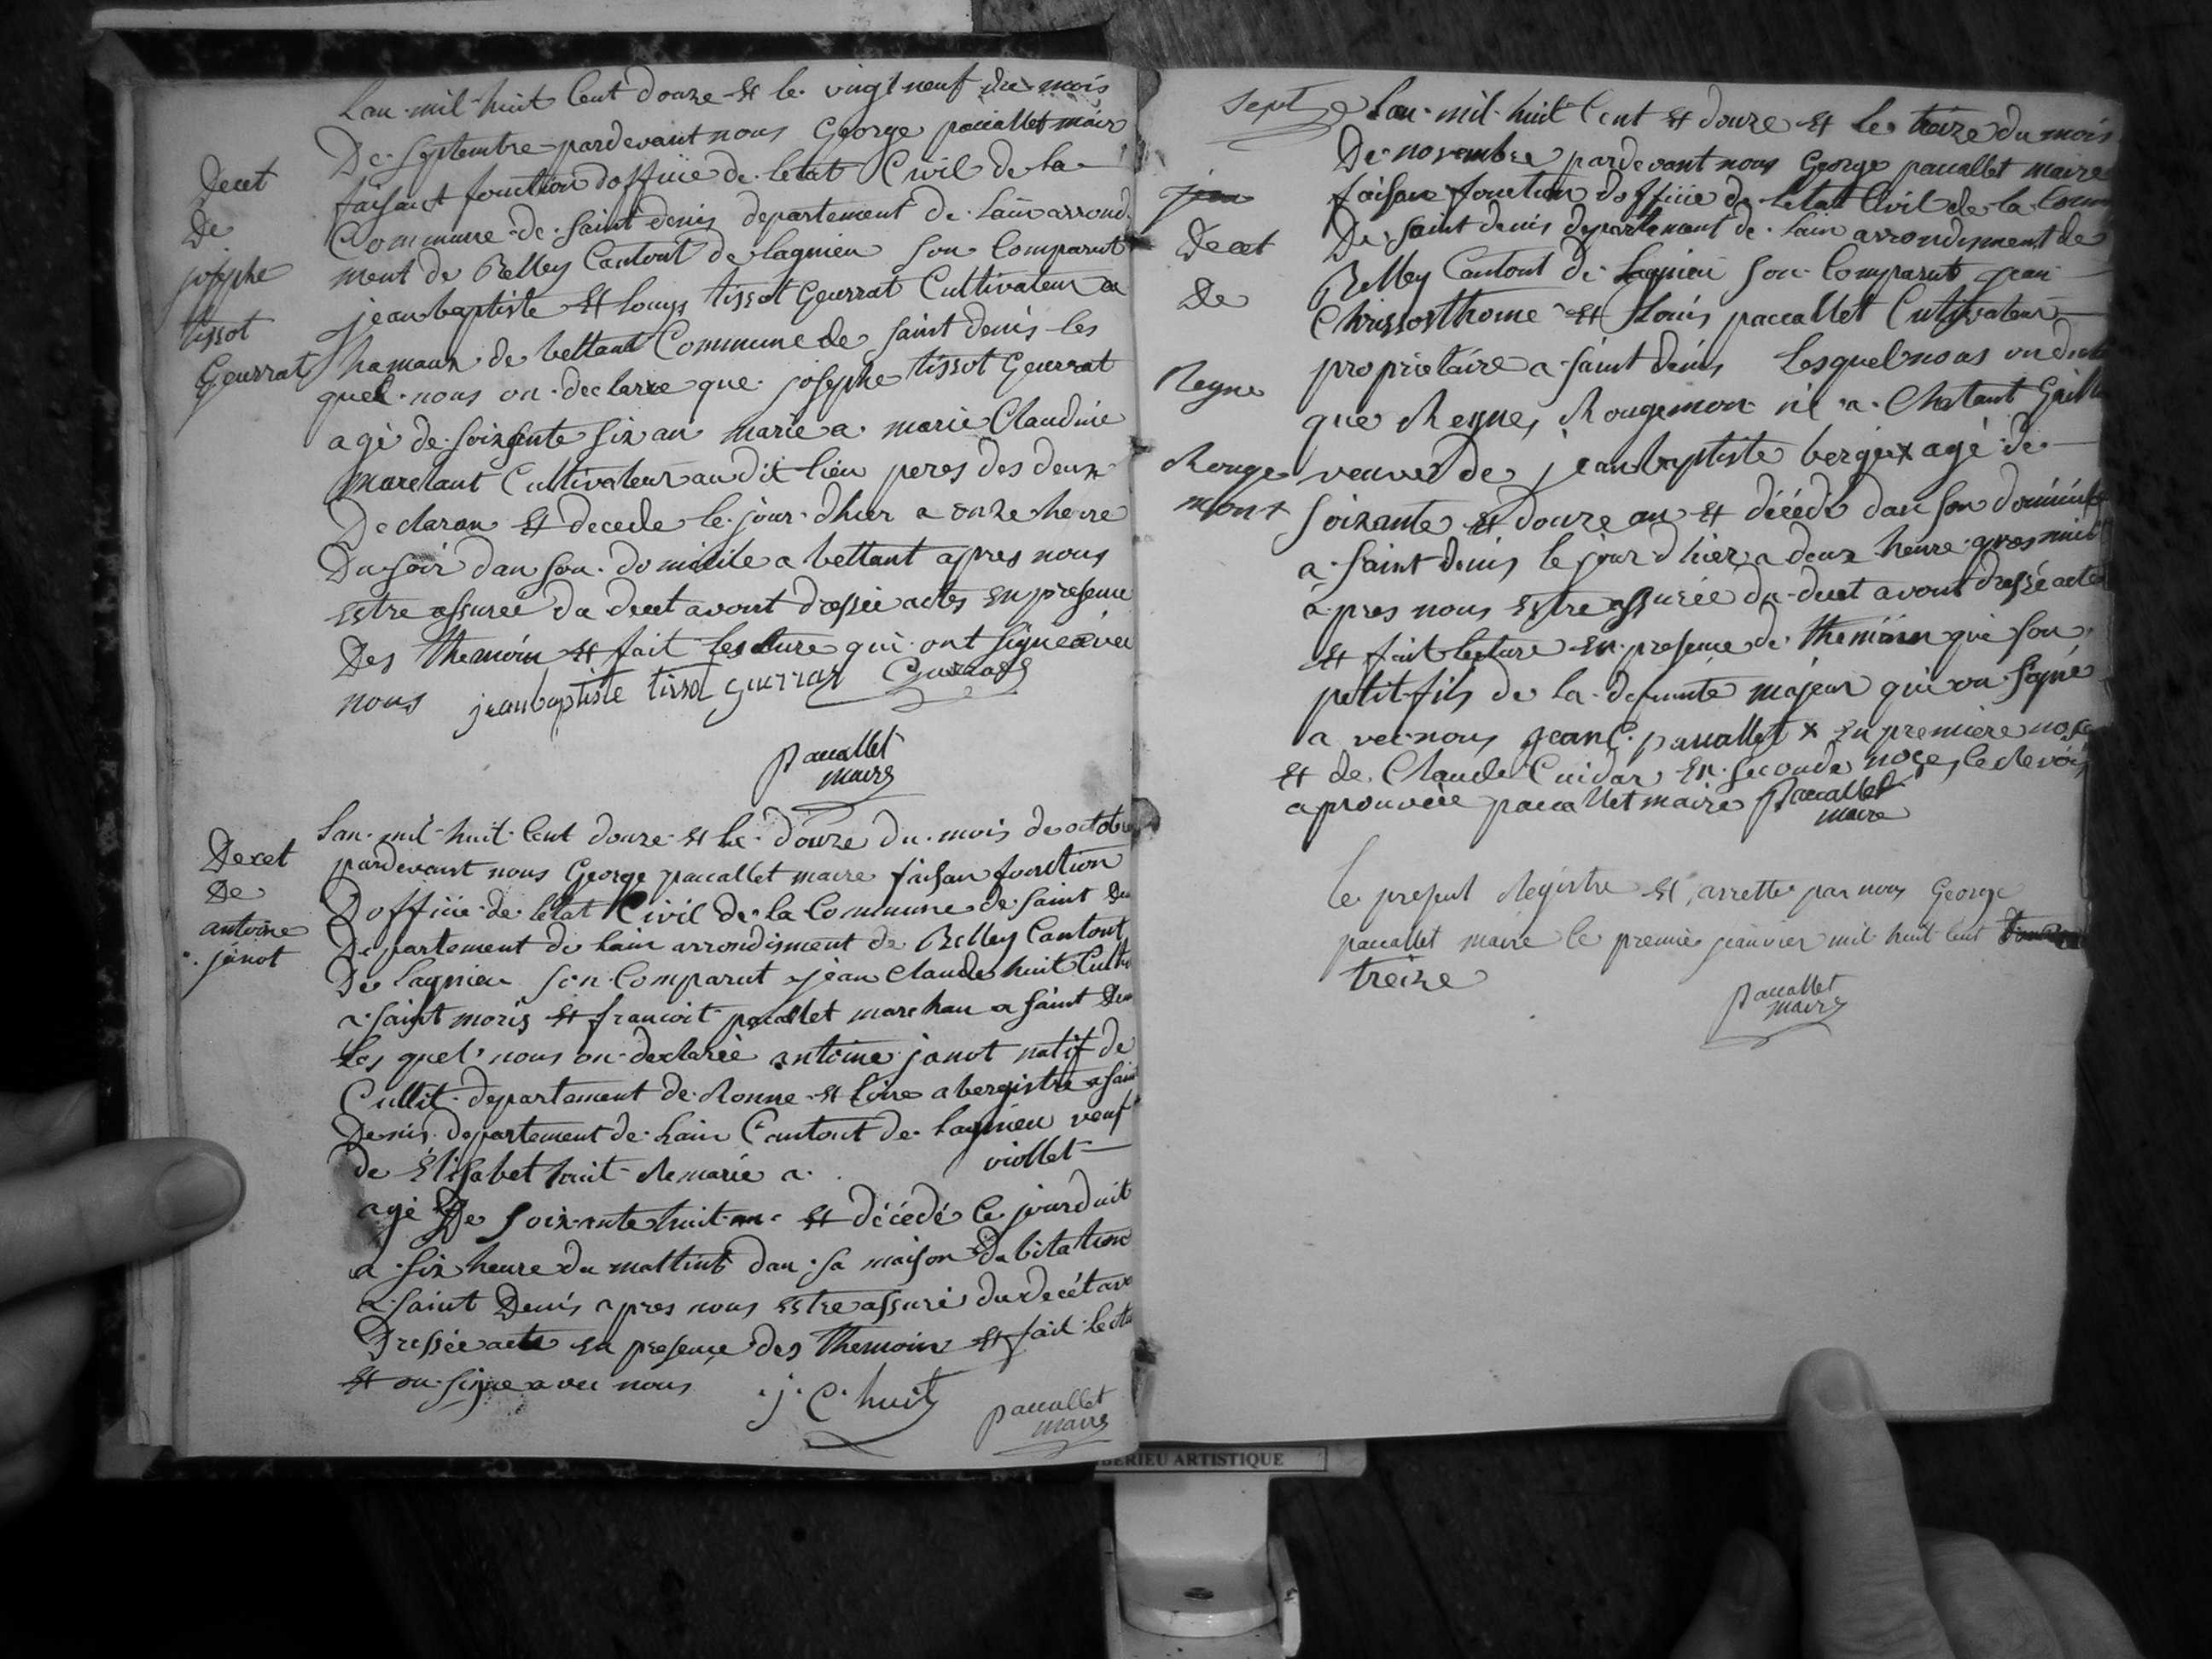 Lan mil huit Cent douze Et le vingt neuf du mois
De Septembre pardevant nous George paccallet mair
faisant fonction dofficie de letat Civil de la
Commune de Saint denis departement de lain arrond
ment de Belley Cantont de lagnieu Son Comparut
jean baptiste Et louis tissot Geurrat Cultivateur a
hamaux de bettant Commune de Saint denis les
quel nous on declaree que josephe tissot Geurrat
agé de soixsente six an marie a marie Claudine
marelaut Cultivateur audit lieu peres des deux
Declaran Et decede le jour dhier a onze heure
Du soir dan son domicile a bettant apres nous
Estre assuree du decet avont dressée actes En presence
Des themoin Et fait lesture qui ont signe avec
nous jeanbaptiste tissot guerrat
paccallet
maire
Decet
De
josephe
tissot
Geurrat
Lan mil huit Cent douze Et le douze du mois de octobre
pardevant nous George paccallet maire faisan fonction
Dofficie de letat Civil de la Commune de Saint Den
Departement de lain arrondisment de Belley Cantont
De Lagnieu son Comparut jean Claude huit Cultiv
a saint moris Et francoit paccallet marchan a saint Den
les quel nous on declarée antoine janot natif de
Cullit departement de Ronne Et loire a bergistre a saint
Denis departement de Lain Cantont de Lagnieu veuf
de Elisabet huit Remarie a viollet
agé De soixante huit an Et décedé Ce jourduit
a six heure du mattint dan sa maison Dabitation
a saint Denis apres nous Estre assuré du decét avo
Dressée acte En presence des themoin Et fait lectu
Et on signe avec nous j. C. huit
paccallet
maire
Decet
De
antoine
janot
Sept Lan mil huit Cent Et douze Et le treize du mois
De novembre pardevant nous George paccallet maire
faisan fonction dofficie de letat Civil de la Comm
De Saint denis departement de lain arrondisment de
Belley Cantont de Lagnieu son Comparut jean
Chrissosthome Et Louis paccallet Cultivateur
proprietaire a saint denis Lesquel nous on decla
que Regne Rougemon né a Chatant Gaill
veuve de jean baptiste bergér x agé de
soixante Et douze an Et décédé dan son domicile
a saint denis le jour dhier a deux heure apres midit
apres nous Estre assurée du decet avont dressé acte
Et fait lecture En presence de themoin qui son
petit fils de la defunte majeur qui on signé
avec nous jean C. paccallet x En premiere nose
Et de Claude Cuidar En seconde noces le Revois
aprouvée paccallet maire paccallet
maire
Decet
De
Regne
Rouge
mont
le present Registre Et arrette par nous George
paccallet maire le premier janvier mil huit Cent
treize
paccallet
maire
BERIEU ARTISTIQUE